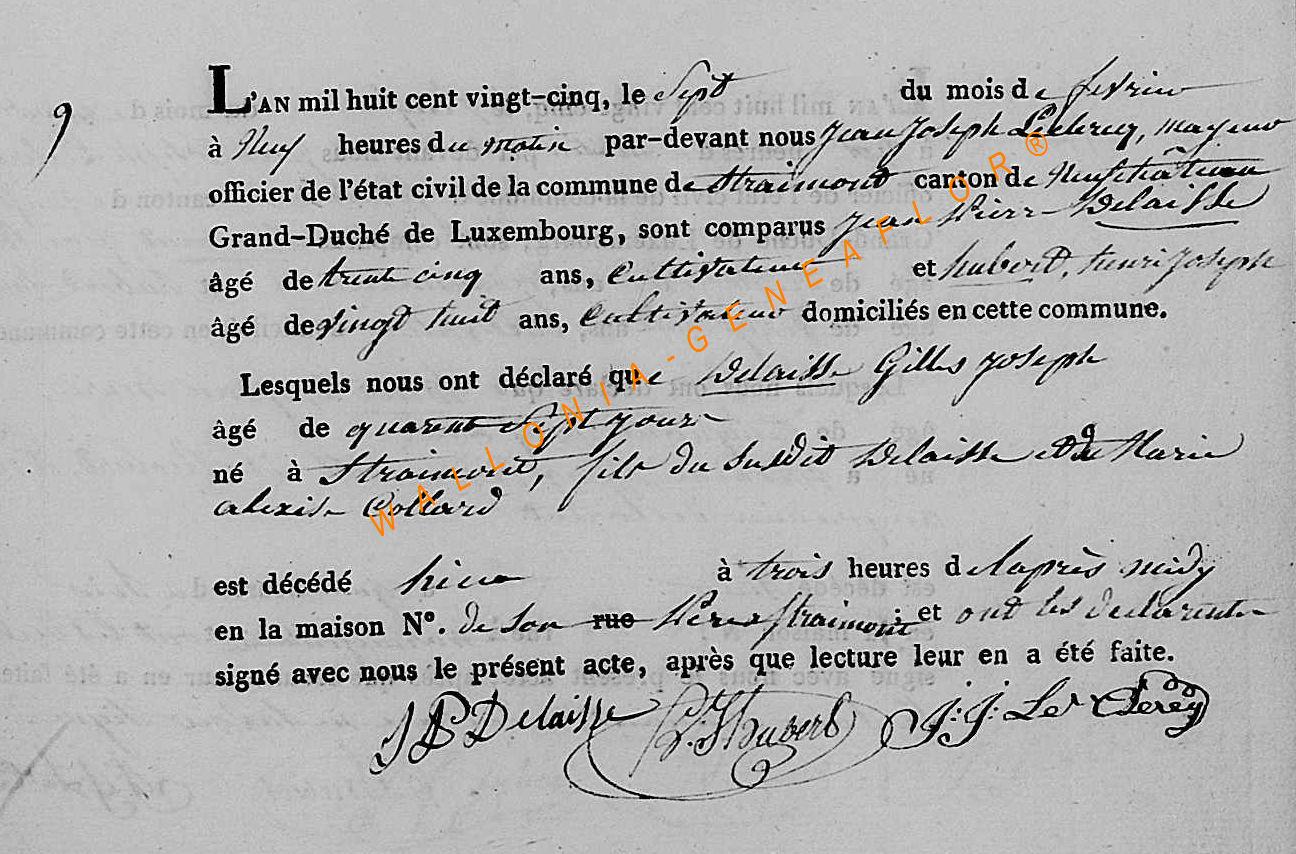 9
L'AN mil huit cent vingt-cinq, le Sept du mois de fevrier
à Neuf heures du matin par-devant nous Jean Joseph Leclercq, mayeur
officier de l'état civil de la commune de Straimont canton de Neufchâteau
Grand-Duché de Luxembourg, sont comparus Jean Pierre Delaisse
âgé de trente cinq ans, Cultivateur et hubert, henri joseph
âgé de vingt huit ans, Cultivateur domiciliés en cette commune.
Lesquels nous ont déclaré que Delaisse Gilles joseph
âgé de quarente Sept jours
né à Straimont, fils du Susdit Delaisse et de Marie
alexise Collard
est décédé hier à trois heures de l'après midy
en la maison N°. de son rue Pere Straimont et ont les declarents
signé avec nous le présent acte, après que lecture leur en a été faite.
JP Delaisse Hubert J: J: Le Clercq
WALLONIA-GENEAFLOR®